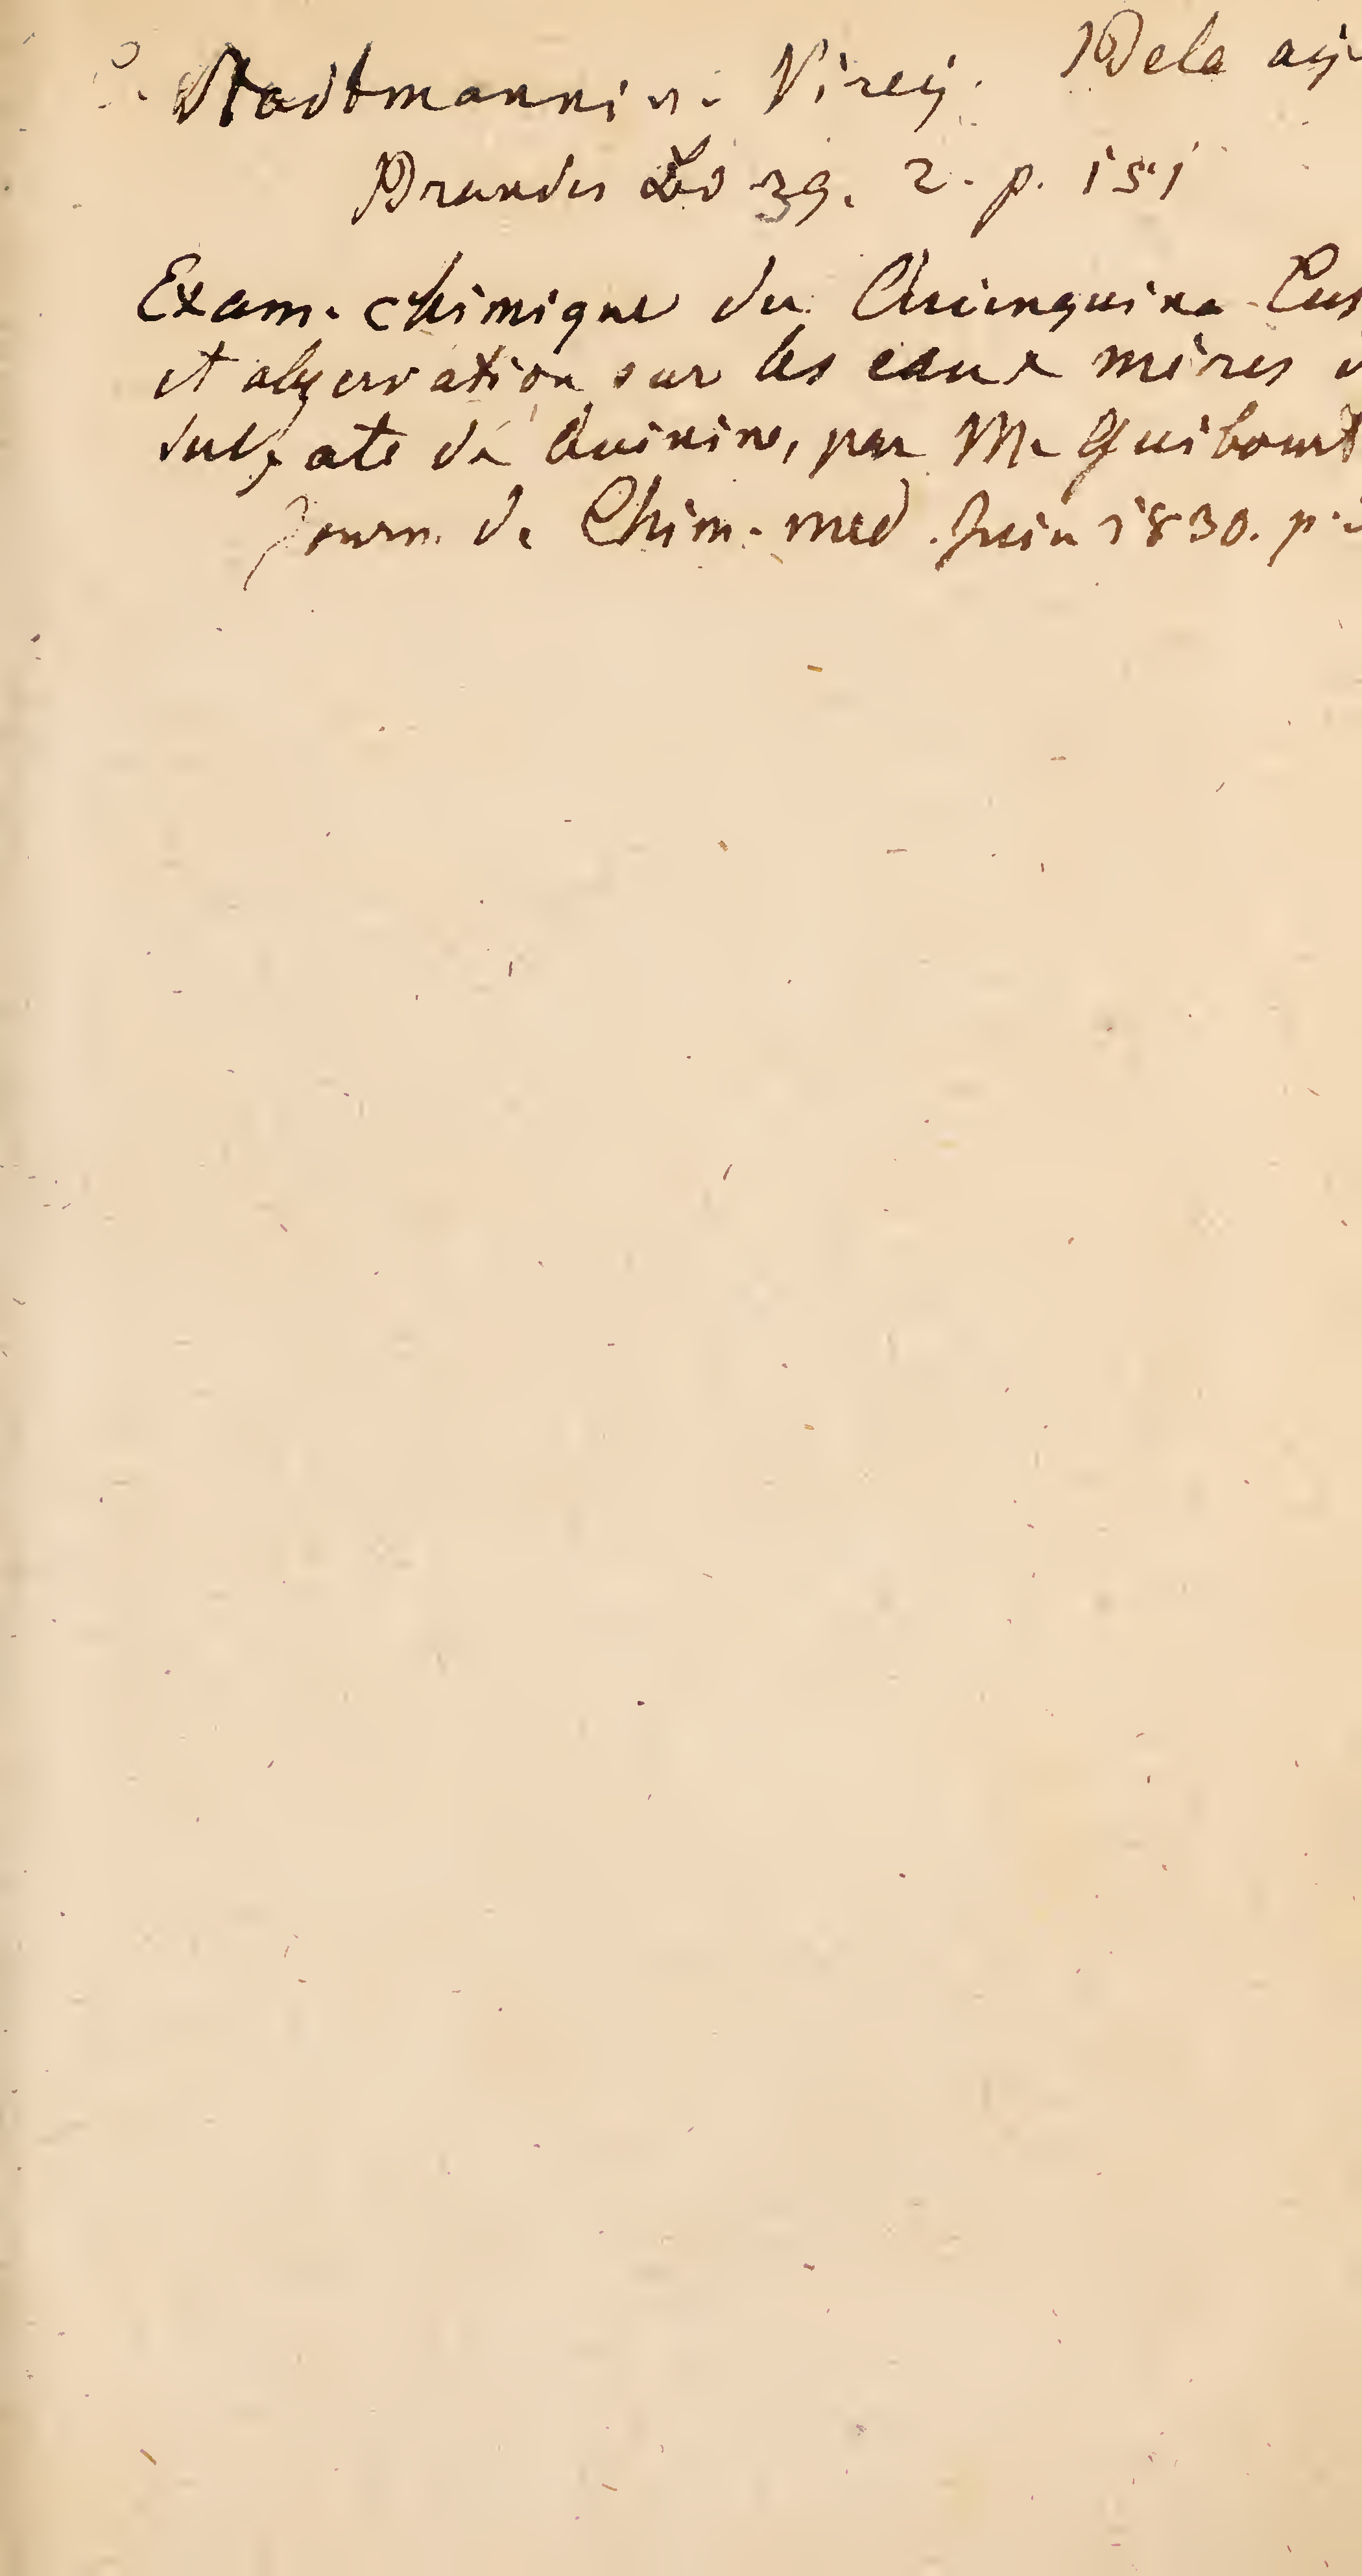 Stadtmanni v. Virey. Dela
Brandes 39. 2. p. 151
Exam. chimique du Quinquina
et observation sur les eaux mères
sulfate de Quinine, par M. Guibourt
Journ. de Chim. med. Juin 1830. p.